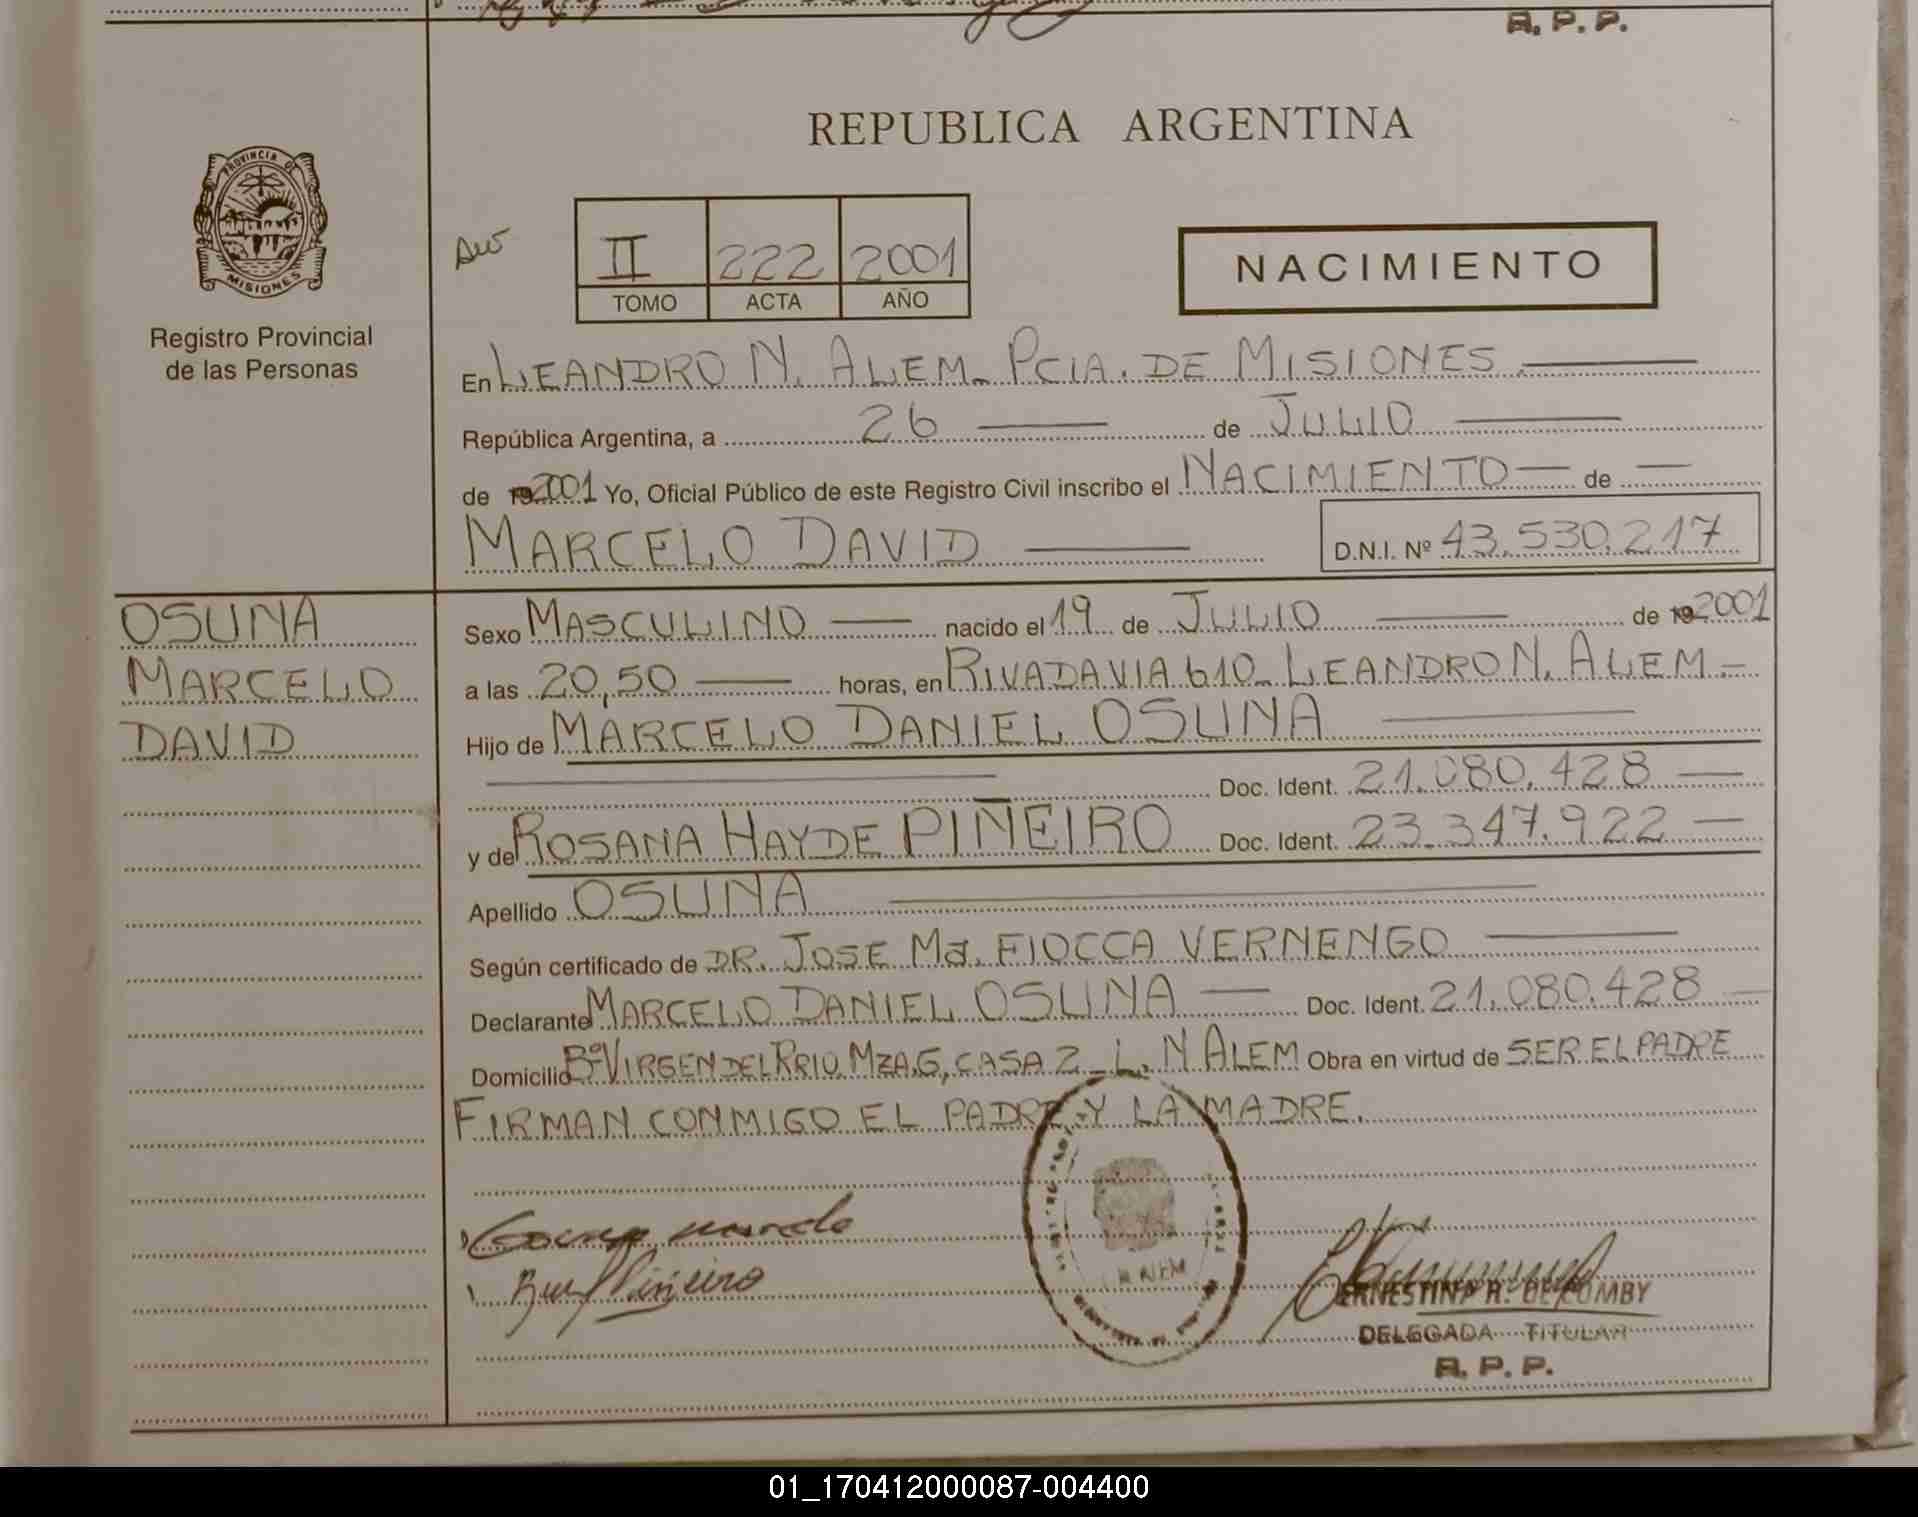 R. P. P.
REPUBLICA ARGENTINA
PROVINCIA DE MISIONES
II 222 2001
TOMO ACTA AÑO
NACIMIENTO
Registro Provincial
de las Personas
En LEANDRO N. ALEM_ PCIA. DE MISIONES.
República Argentina, a 26 de JULIO
de 2001 Yo, Oficial Público de este Registro Civil inscribo el NACIMIENTO de
MARCELO DAVID D.N.I. Nº 43.530.217
OSUNA
MARCELO
DAVID
Sexo MASCULINO nacido el 19 de JULIO de 192001
a las 20,50 horas, en RIVADAVIA 610_ LEANDRO N. ALEM.
Hijo de MARCELO DANIEL OSUNA
Doc. Ident. 21.080.428
y de ROSANA HAYDE PIÑEIRO Doc. Ident. 23.347.922
Apellido OSUNA
Según certificado de DR. JOSE Ma. FIOCCA VERNENGO
Declarante MARCELO DANIEL OSUNA Doc. Ident. 21.080.428
Domicilio Bº VIRGEN DEL RRIO MZA.G, CASA 2_ L. N ALEM Obra en virtud de SER EL PADRE
FIRMAN CONMIGO EL PADRE Y LA MADRE.
Piñeiro
N ALEM
ERNESTINA R. DE COMBY
DELEGADA TITULAR
R. P. P.
01_170412000087-004400